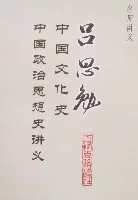 讲义
吕思勉
中国文化史
中国政治思想史讲义